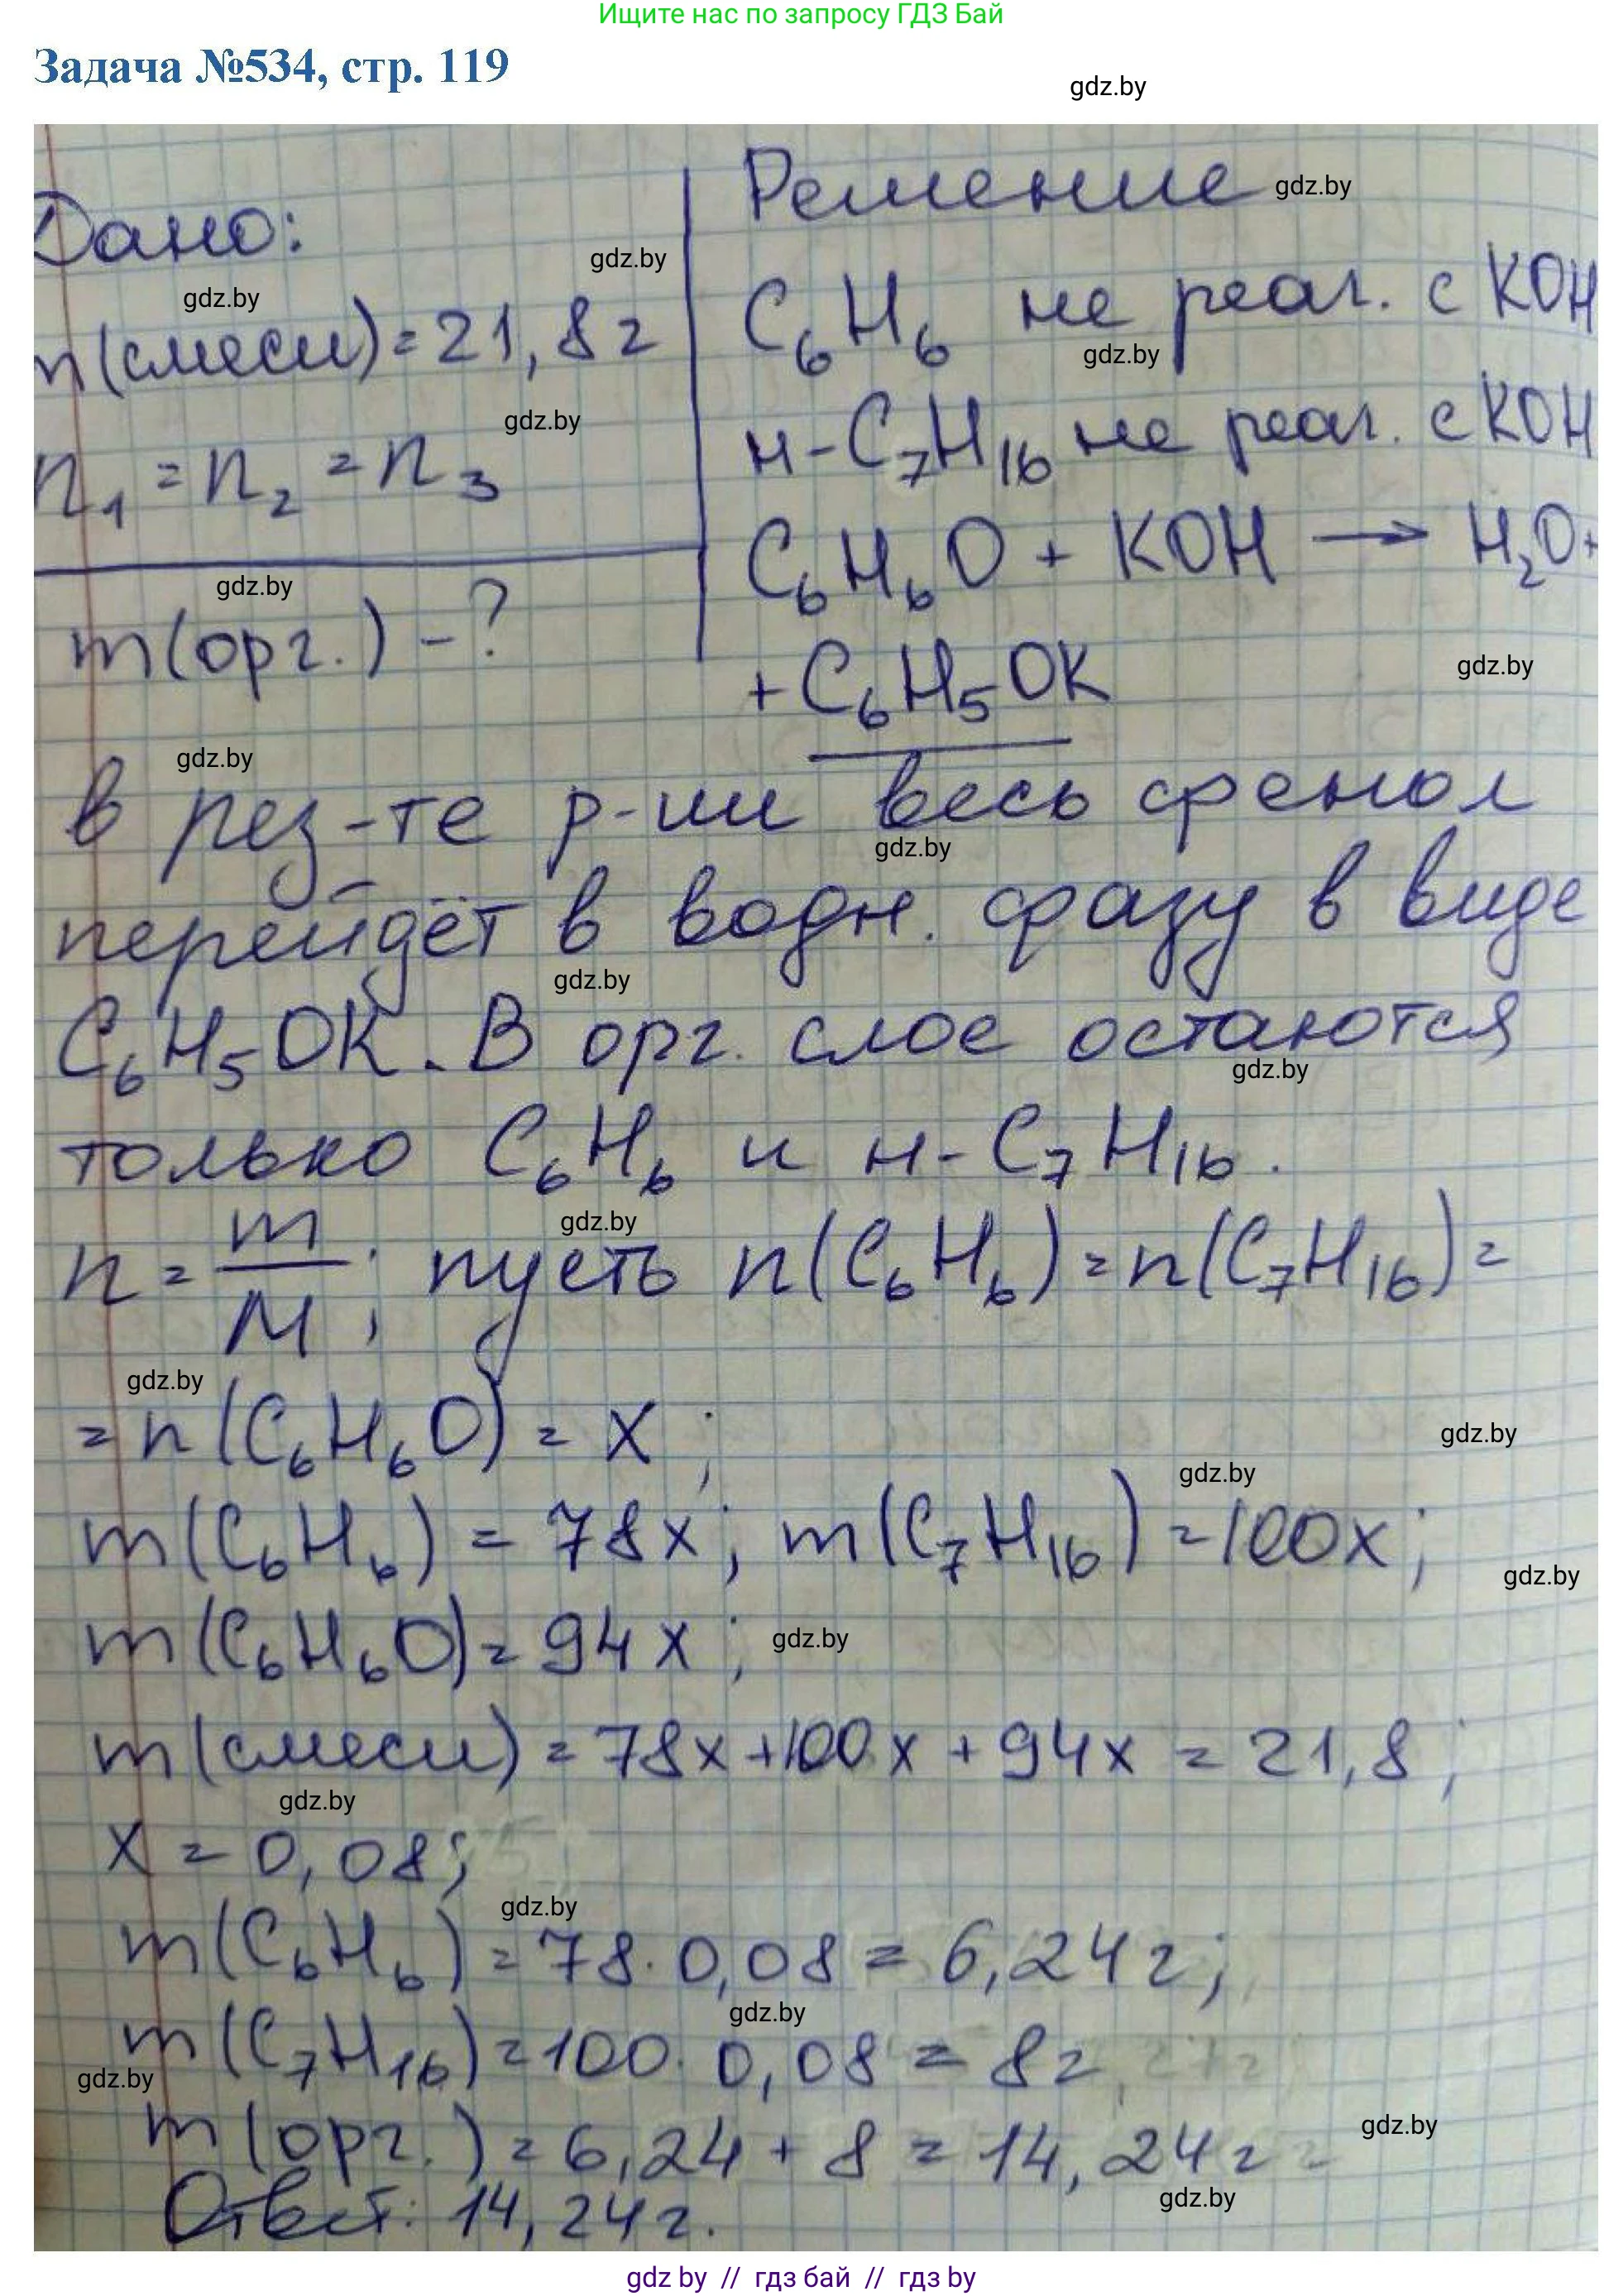 Ищите нас по запросу ГДЗ Бай
Задача №534, стр. 119
gdz.by
Дано:
m(смеси)=21,8г
n₁=n₂=n₃
m(орг.)-?
Решение
C₆H₆ не реаг. с KOH
н-C₇H₁₆ не реаг. с KOH
C₆H₆O + KOH → H₂O+
+C₆H₅OK
в рез-те р-ии весь фенол
перейдёт в водн. фазу в виде
C₆H₅OK. В орг. слое остаются
только C₆H₆ и н-C₇H₁₆.
n = m/M; пусть n(C₆H₆)=n(C₇H₁₆)=
=n(C₆H₆O)=x;
m(C₆H₆)=78x; m(C₇H₁₆)=100x;
m(C₆H₆O)=94x;
m(смеси)=78x+100x+94x=21,8;
x=0,08;
m(C₆H₆)=78·0,08=6,24г;
m(C₇H₁₆)=100·0,08=8г
m(орг.)=6,24+8=14,24г
Ответ: 14,24г.
gdz by // гдз бай // гдз by